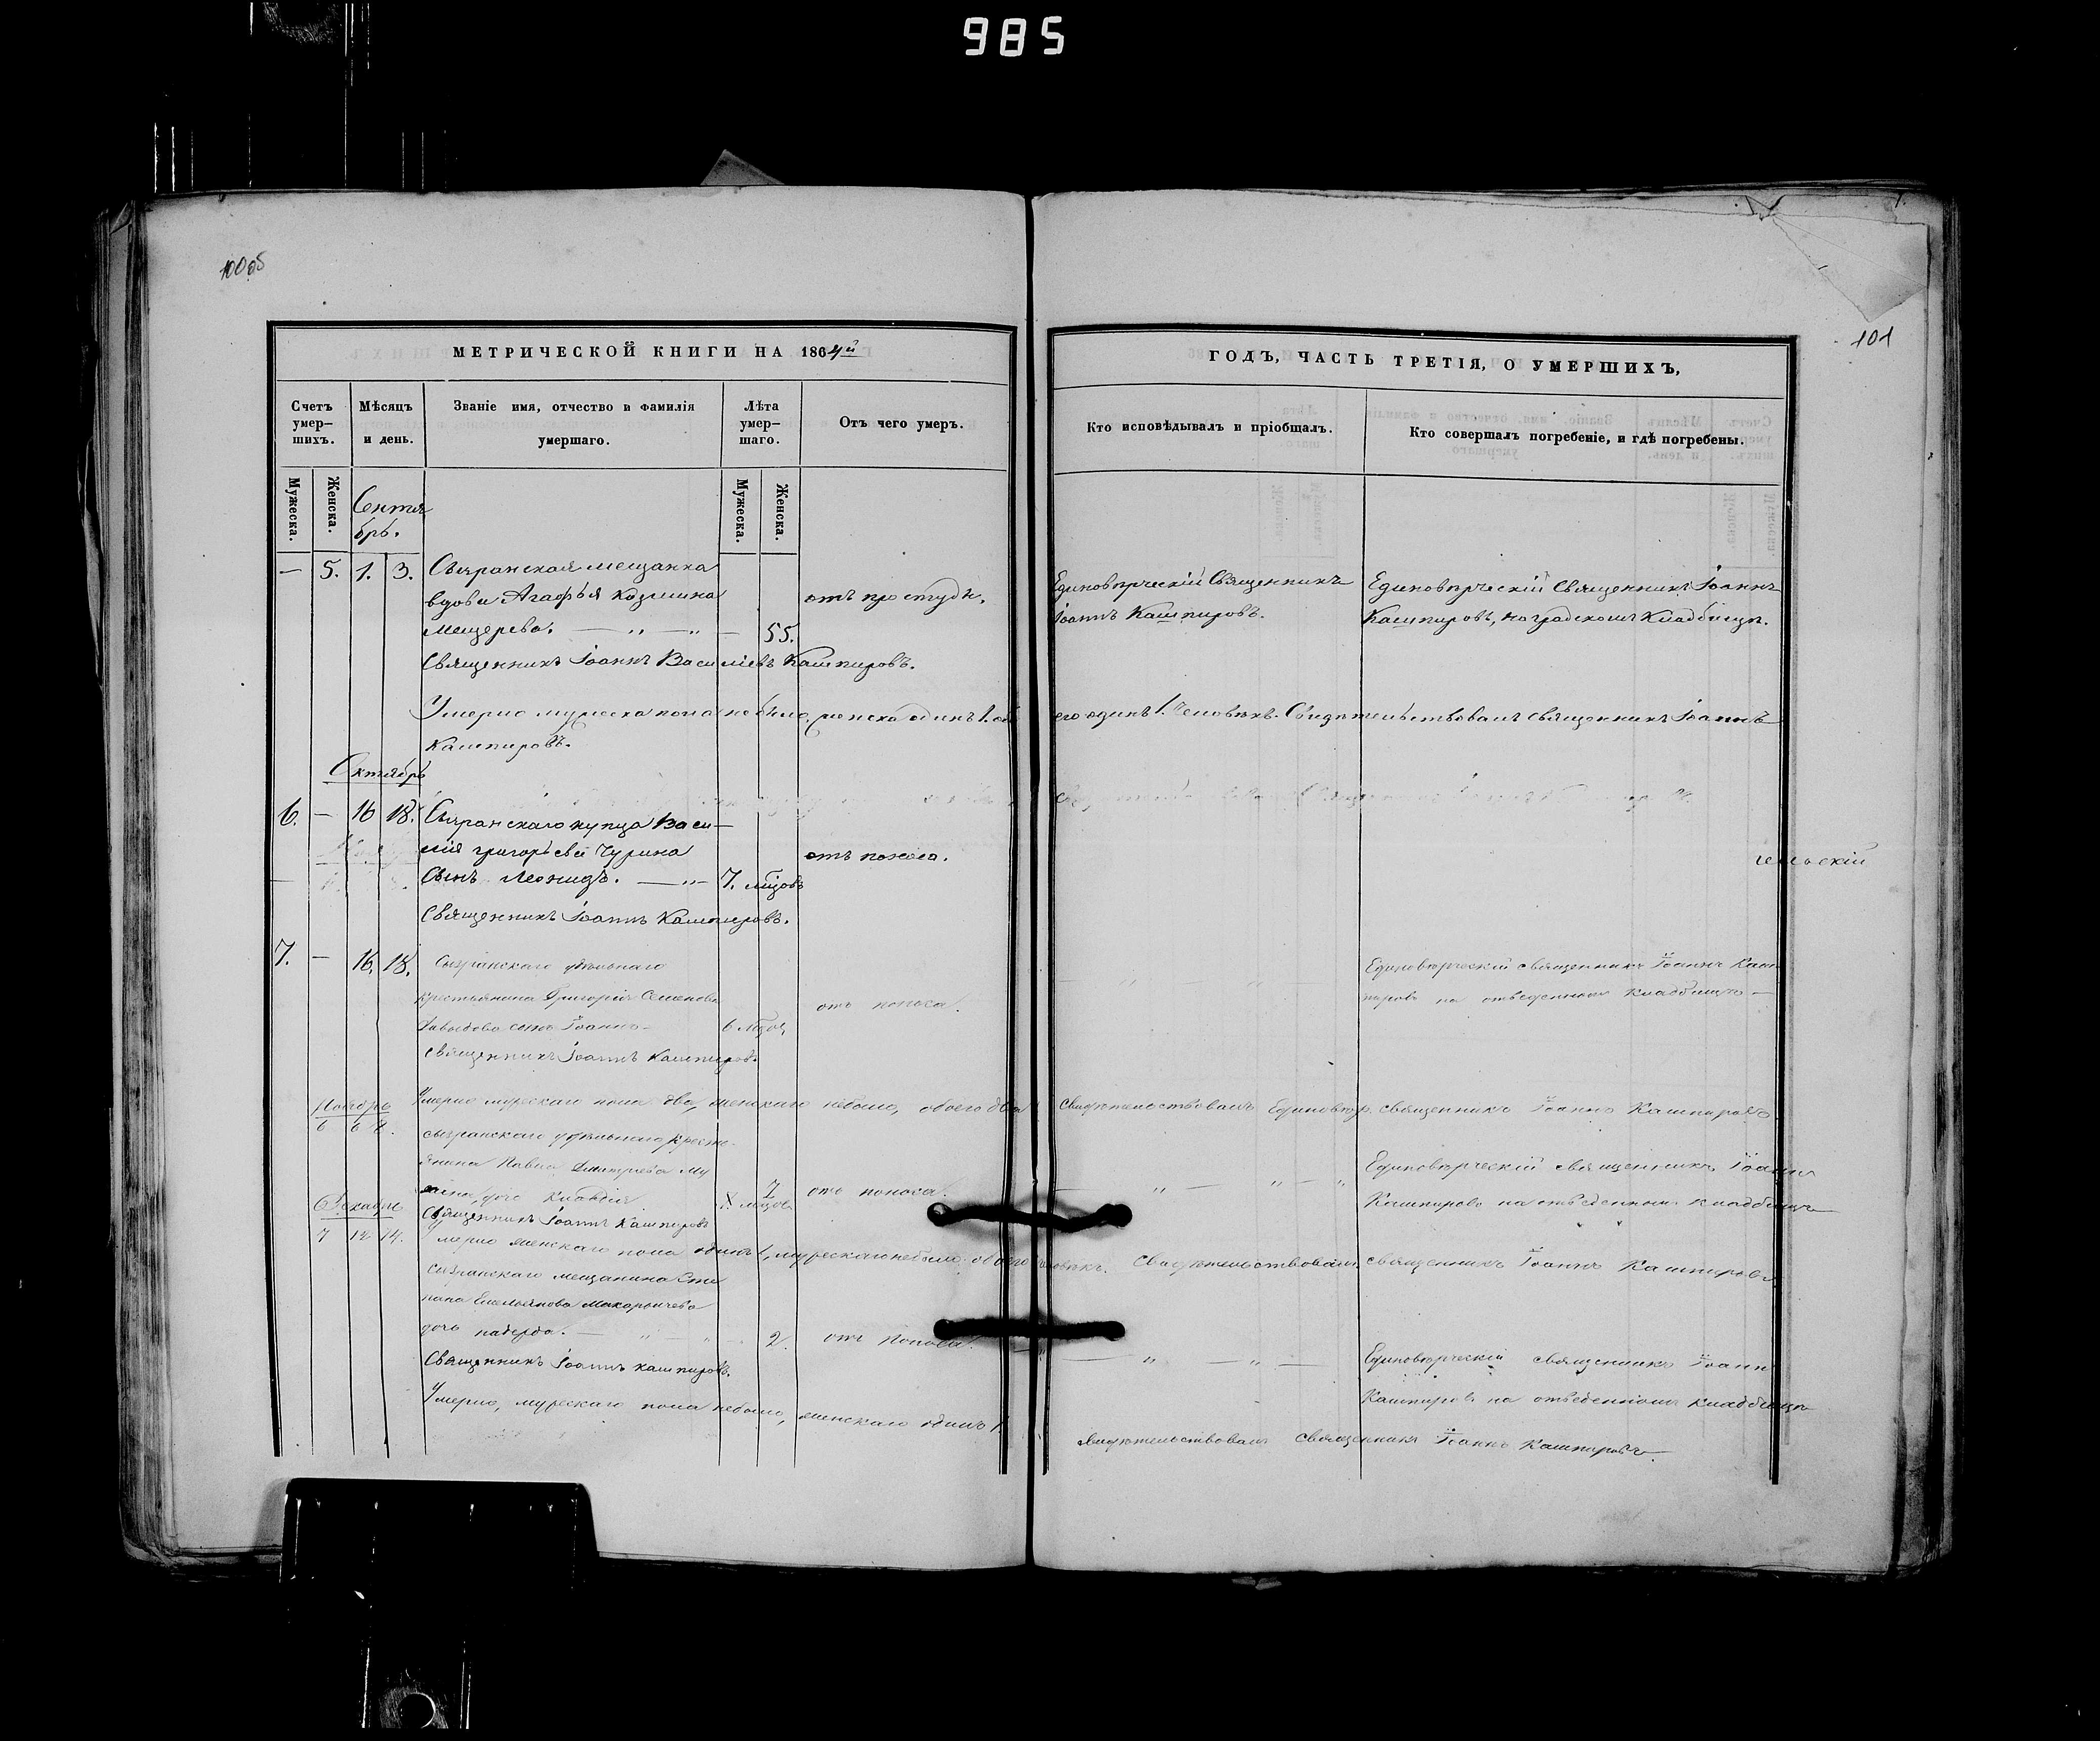 985
101
МЕТРИЧЕСКОЙ КНИГИ НА 1864й
ГОДЪ, ЧАСТЬ ТРЕТІЯ, О УМЕРШИХЪ,
Счетъ умер-шихъ.
Мѣсяцъ и день.
Званіе имя, отчество и фамилія умершаго.
Лѣта умер-шаго.
Отъ чего умеръ.
Кто исповѣдывалъ и пріобщалъ.
Кто совершалъ погребеніе, и гдѣ погребены.
Мужеска.
Женска.
Сентя
брь.
Мужеска.
Женска.
— 5. 1. 3. Сызранская мещанка
вдова Агафья Козмина
Мещерева. — „ — „ — 55.
отъ простуды.
Единовѣрческій Священникъ
Іоаннъ Кашпировъ.
Единовѣрческій Священникъ Іоаннъ
Кашпировъ, на градскомъ Кладбищѣ.
Священникъ Іоаннъ Василіевъ Кашпировъ.
Умерло мужеска пола не было, женска одинъ 1. обо
его одинъ 1. человѣкъ. Свидѣтельствовалъ священникъ Іоаннъ
Кашпировъ.
Октябрь
6. — 16 18. Сызранскаго купца Васи-
лія Григорьева Чурина
сынъ Леонидъ. — „ — 7. мцовъ
отъ поноса.
Священникъ Іоаннъ Кашпировъ.
7. — 16. 18. Сызранскаго удѣльнаго
крестьянина Григорія Семенова
Давыдова сынъ Іоаннъ — 6 мцовъ
отъ поноса.
— „ — „ —
Единовѣрческій священникъ Іоаннъ Каш
пировъ на отведенномъ кладбищѣ —
Священникъ Іоаннъ Кашпировъ.
Умерло мужескаго пола два, женскаго небыло, обоего два
Свидѣтельствовалъ Единовѣр. священникъ Іоаннъ Кашпировъ
Ноябрь
6 6 8.
сызранскаго удѣльнаго кресть-
янина Павла Дмитріева
дочь Клавдія
7 мцовъ
отъ поноса.
— „ — „ — „
Единовѣрческій священникъ Іоаннъ
Кашпировъ на отведенномъ кладбищѣ
Священникъ Іоаннъ Кашпировъ
Умерло женскаго пола одинъ 1, мужескаго небыло обоего
человѣкъ. Свидѣтельствовалъ священникъ Іоаннъ Кашпировъ
Декабрь
7 12 14.
сызранскаго мещанина Сте
пана Емельянова Макарычева
дочь
2.
отъ поноса.
— „ — „ —
Единовѣрческій священникъ Іоаннъ
Кашпировъ на отведенномъ кладбищѣ
Священникъ Іоаннъ Кашпировъ.
Умерло, мужескаго пола небыло, женскаго одинъ 1.
Свидѣтельствовалъ Священникъ Іоаннъ Кашпировъ.